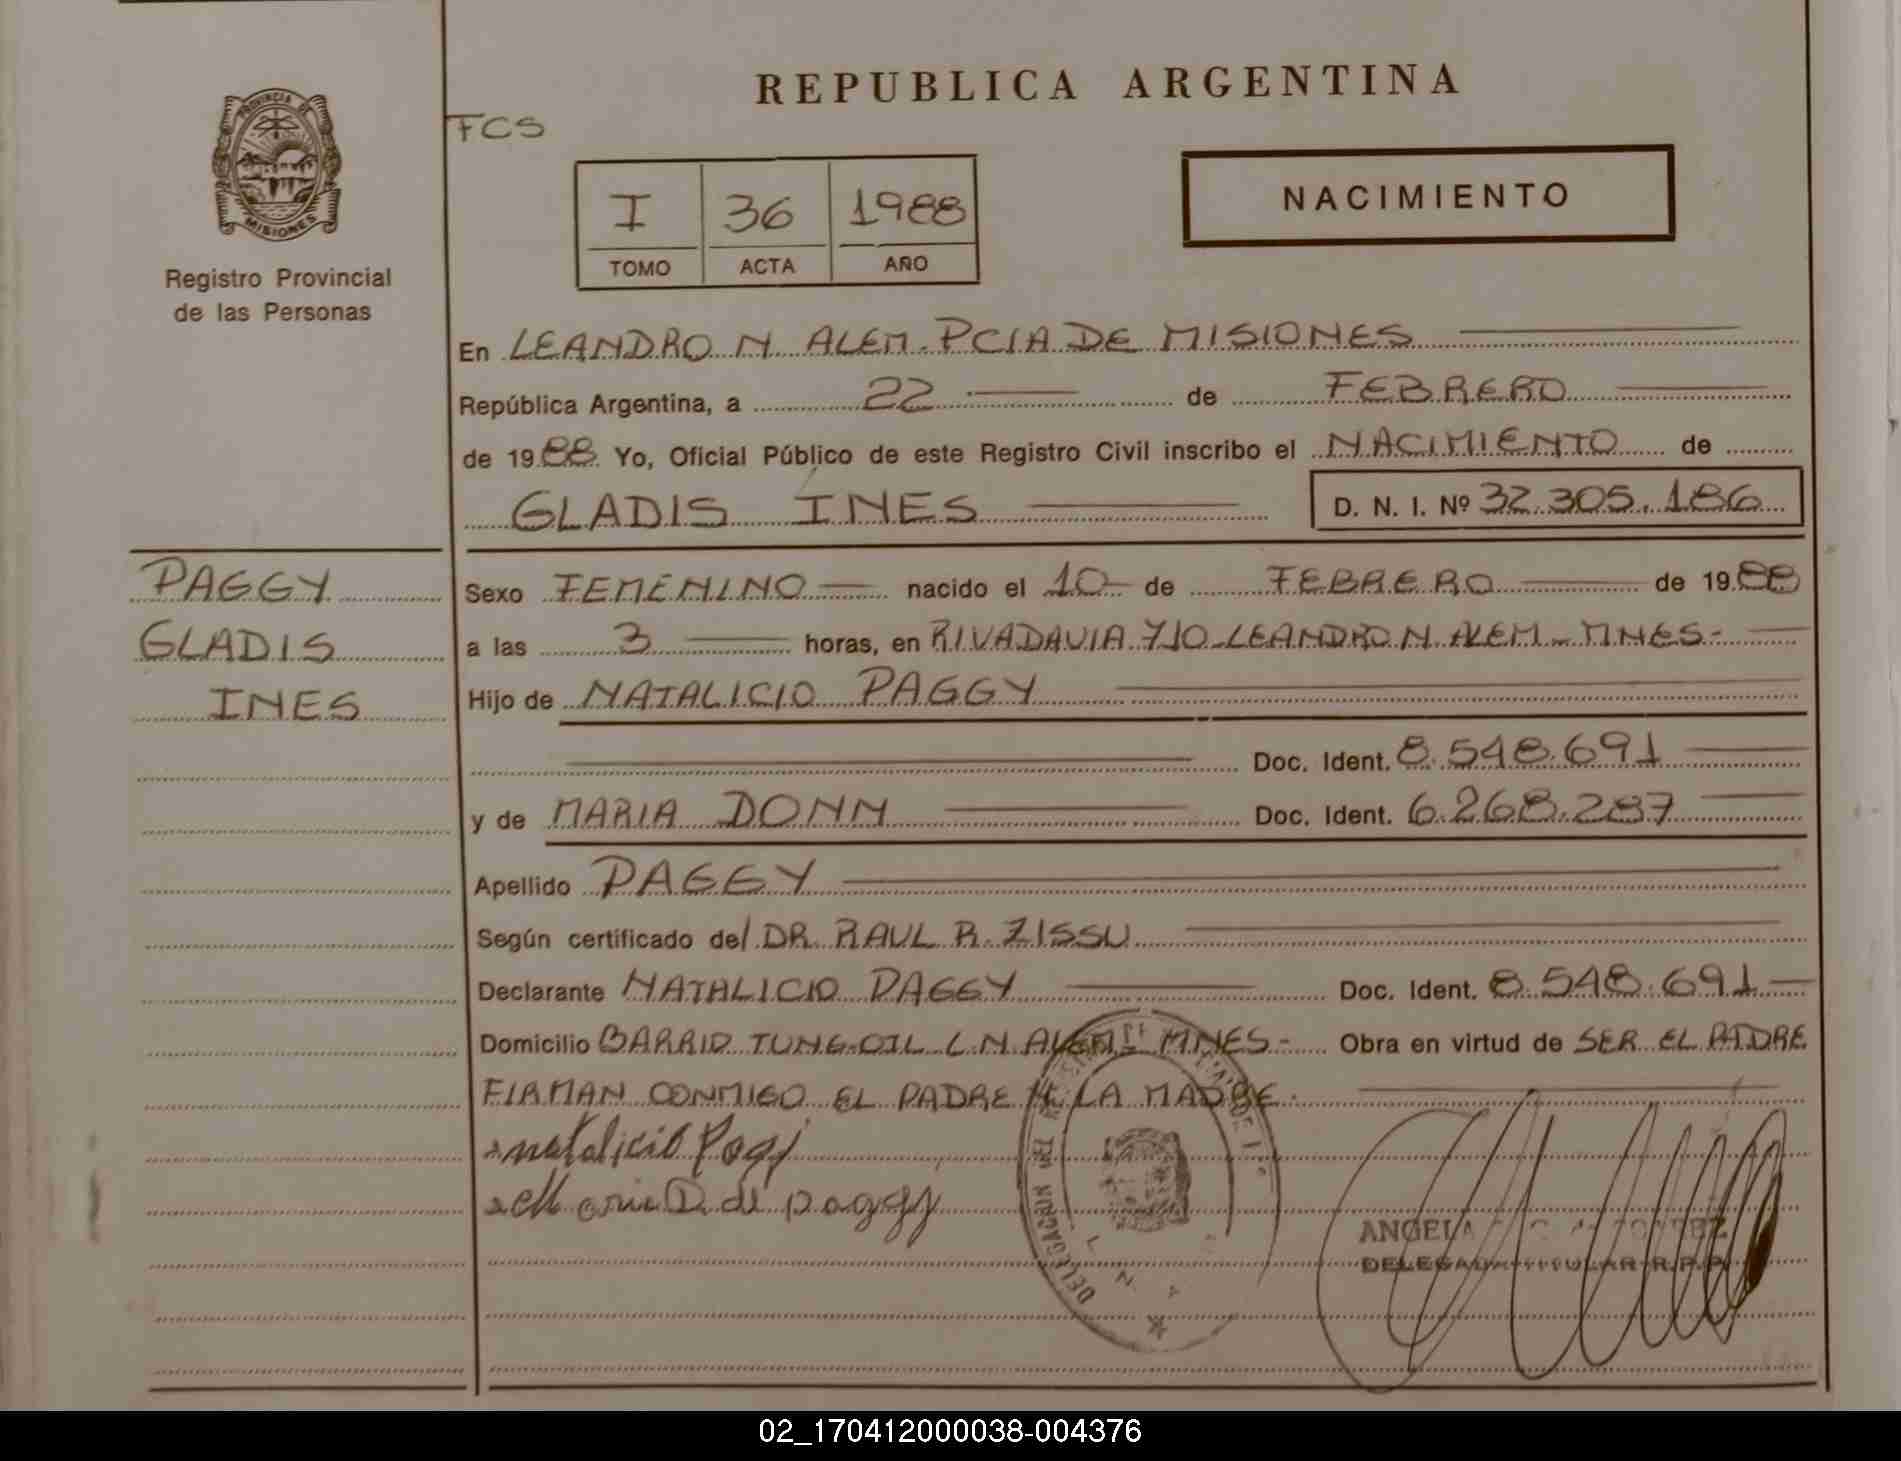 REPUBLICA ARGENTINA
PROVINCIA DE
MISIONES
Registro Provincial
de las Personas
FCS
I 36 1988
TOMO ACTA AÑO
NACIMIENTO
En LEANDRO N. ALEM - PCIA DE MISIONES
República Argentina, a 22 de FEBRERO
de 1988 Yo, Oficial Público de este Registro Civil inscribo el NACIMIENTO de
GLADIS INES D. N. I. Nº 32.305.186
PAGGY
GLADIS
INES
Sexo FEMENINO nacido el 10 de FEBRERO de 1988
a las 3 horas, en RIVADAVIA 710-LEANDRO N. ALEM - MNES-
Hijo de NATALICIO PAGGY
Doc. Ident. 8.548.691
y de MARIA DONN Doc. Ident. 6.268.287
Apellido PAGGY
Según certificado de/ DR. RAUL R. ZISSU
Declarante NATALICIO PAGGY Doc. Ident. 8.548.691
Domicilio BARRIO TUNG-OIL L N ALEM - MNES- Obra en virtud de SER EL PADRE
FIRMAN CONMIGO EL PADRE Y LA MADRE.
natalicio Pagj
Maria D. de paggy
DELEGACION DEL
ANGELA
DELEGADA TITULAR R.P.P.
02_170412000038-004376